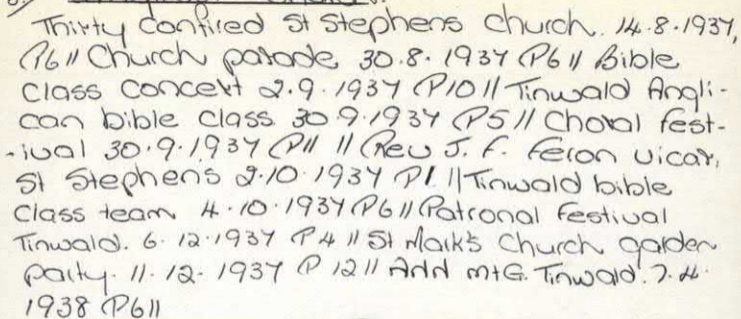 Thirty Confired St Stephens church. 14.8.1937,
P6 // Church parade 30.8.1937 P6 // Bible
Class concert 2.9.1937 P10 // Tinwald Angli-
can bible class 30.9.1937 P5 // Choral fest-
-ival 30.9.1937 P11 // Rev J. F. Feron vicar,
St Stephens 2.10.1937 P1. // Tinwald bible
Class team 4.10.1937 P6 // Patronal Festival
Tinwald. 6.12.1937 P4 // St Mark's Church garden
party. 11.12.1937 P12 // Add mtG. Tinwald. 7.4.
1938 P6 //